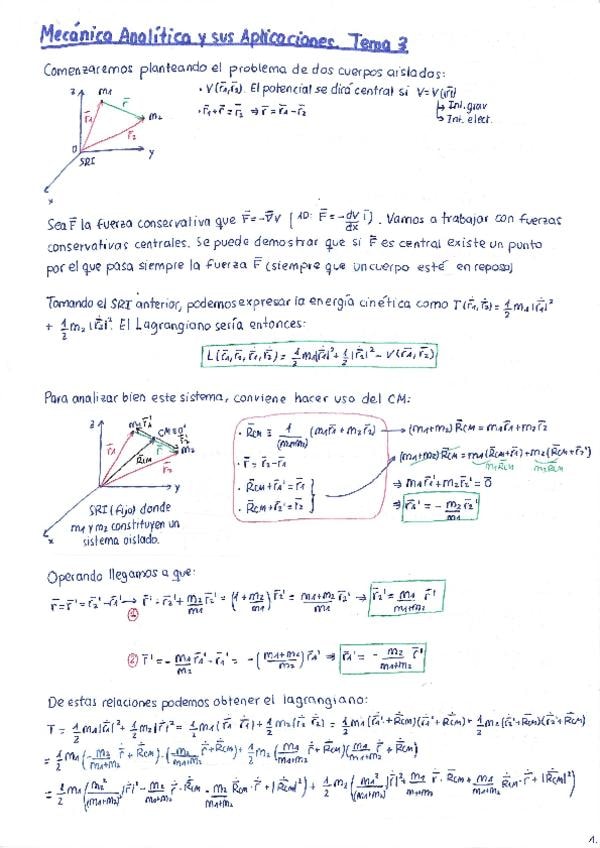 Mecánica Analítica y sus Aplicaciones. Tema 3
Comenzaremos planteando el problema de dos cuerpos aislados:
z m1 r̄ m2 r̄1 r̄2 0 SRI y x
· V(r̄1,r̄2). El potencial se dirá central si V=V(|r̄|)
↳ Int. grav
↳ Int. elect.
· r̄1+r̄=r̄2 ⇒ r̄=r̄1-r̄2
Sea F̄ la fuerza conservativa que F̄=-∇̄V [AD: F̄=-dV/dx ī]. Vamos a trabajar con fuerzas
conservativas centrales. Se puede demostrar que si F̄ es central existe un punto
por el que pasa siempre la fuerza F̄ (siempre que un cuerpo esté en reposo)
Tomando el SRI anterior, podemos expresar la energía cinética como T(ṙ̄1,ṙ̄2)=1/2 m1|ṙ̄1|²
+ 1/2 m2|ṙ̄2|². El Lagrangiano sería entonces:
L(r̄1,r̄2,ṙ̄1,ṙ̄2) = 1/2 m1|ṙ̄1|²+1/2|ṙ̄2|²-V(r̄1,r̄2)
Para analizar bien este sistema, conviene hacer uso del CM:
z m1 r̄1' CM≡0' r̄2' r̄ m2 r̄1 R̄CM r̄2 y x
SRI (fijo) donde
m1 y m2 constituyen un
sistema aislado.
· R̄CM ≡ 1/(m1+m2) (m1r̄1+m2r̄2) → (m1+m2)R̄CM=m1r̄1+m2r̄2
· r̄=r̄2-r̄1
· R̄CM+r̄1'=r̄1
· R̄CM+r̄2'=r̄2
(m1+m2)R̄CM=m1(R̄CM+r̄1')+m2(R̄CM+r̄2')
m1R̄CM m2R̄CM
⇒ m1r̄1'+m2r̄2'=0̄
⇒ r̄1'=-m2/m1 r̄2'
Operando llegamos a que:
r̄=r̄'=r̄2'-r̄1' → r̄'=r̄2'+m2/m1 r̄2'=(1+m2/m1)r̄2'=(m1+m2)/m1 r̄2' ⇒ r̄2'=m1/(m1+m2) r̄'
①
② r̄'=-m1/m2 r̄1'-r̄1'=-((m1+m2)/m2)r̄1' ⇒ r̄1'=-m2/(m1+m2) r̄'
De estas relaciones podemos obtener el lagrangiano:
T=1/2 m1|ṙ̄1|²+1/2 m2|ṙ̄|²=1/2 m1(ṙ̄1 ṙ̄1)+1/2 m2(ṙ̄2 ṙ̄2)=1/2 m1(ṙ̄1'+Ṙ̄CM)(ṙ̄1'+Ṙ̄CM)+1/2 m2(ṙ̄2'+Ṙ̄CM)(ṙ̄2'+Ṙ̄CM)
=1/2 m1(-m2/(m1+m2) ṙ̄+Ṙ̄CM)·(-m2/(m1+m2) ṙ̄+Ṙ̄CM)+1/2 m2(m1/(m1+m2) ṙ̄+Ṙ̄CM)(m1/(m1+m2) ṙ̄+Ṙ̄CM)
=1/2 m1(m2²/(m1+m2)²|ṙ̄|²-m2/(m1+m2) ṙ̄·Ṙ̄CM-m2/(m1+m2) Ṙ̄CM·ṙ̄+|Ṙ̄CM|²)+1/2 m2(m1²/(m1+m2)²|ṙ̄|²+m1/(m1+m2) ṙ̄·Ṙ̄CM+m1/(m1+m2) Ṙ̄CM·ṙ̄+|Ṙ̄CM|²)
1.